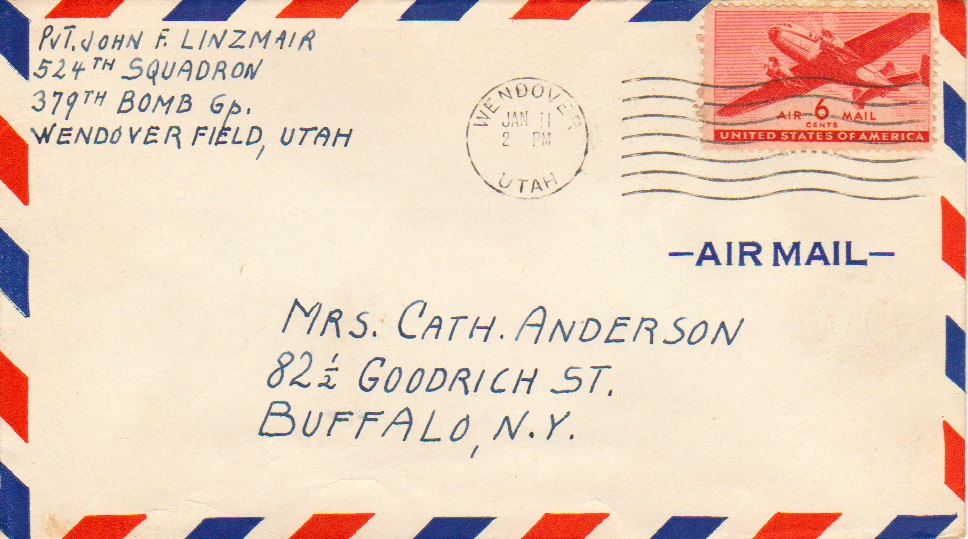 PVT. JOHN F. LINZMAIR
524TH SQUADRON
379TH BOMB GP.
WENDOVER FIELD, UTAH
WENDOVER
JAN 11
2 PM
UTAH
AIR 6 MAIL
CENTS
UNITED STATES OF AMERICA
—AIR MAIL—
MRS. CATH. ANDERSON
82 ½ GOODRICH ST.
BUFFALO, N.Y.